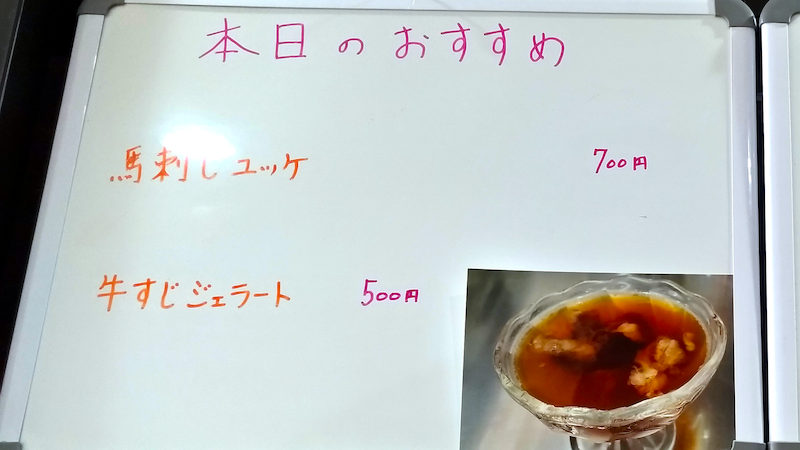 本日のおすすめ
馬刺しユッケ 700円
牛すじジェラート 500円